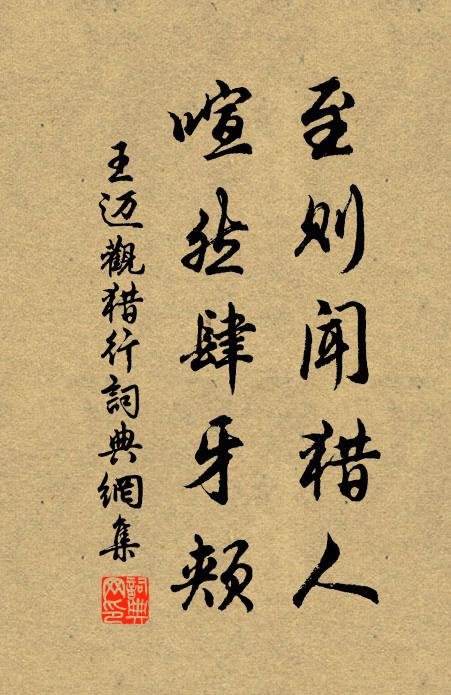 至则闻猎人
喧然肆牙颊
王迈觀猎行詞典網集
詞典網印